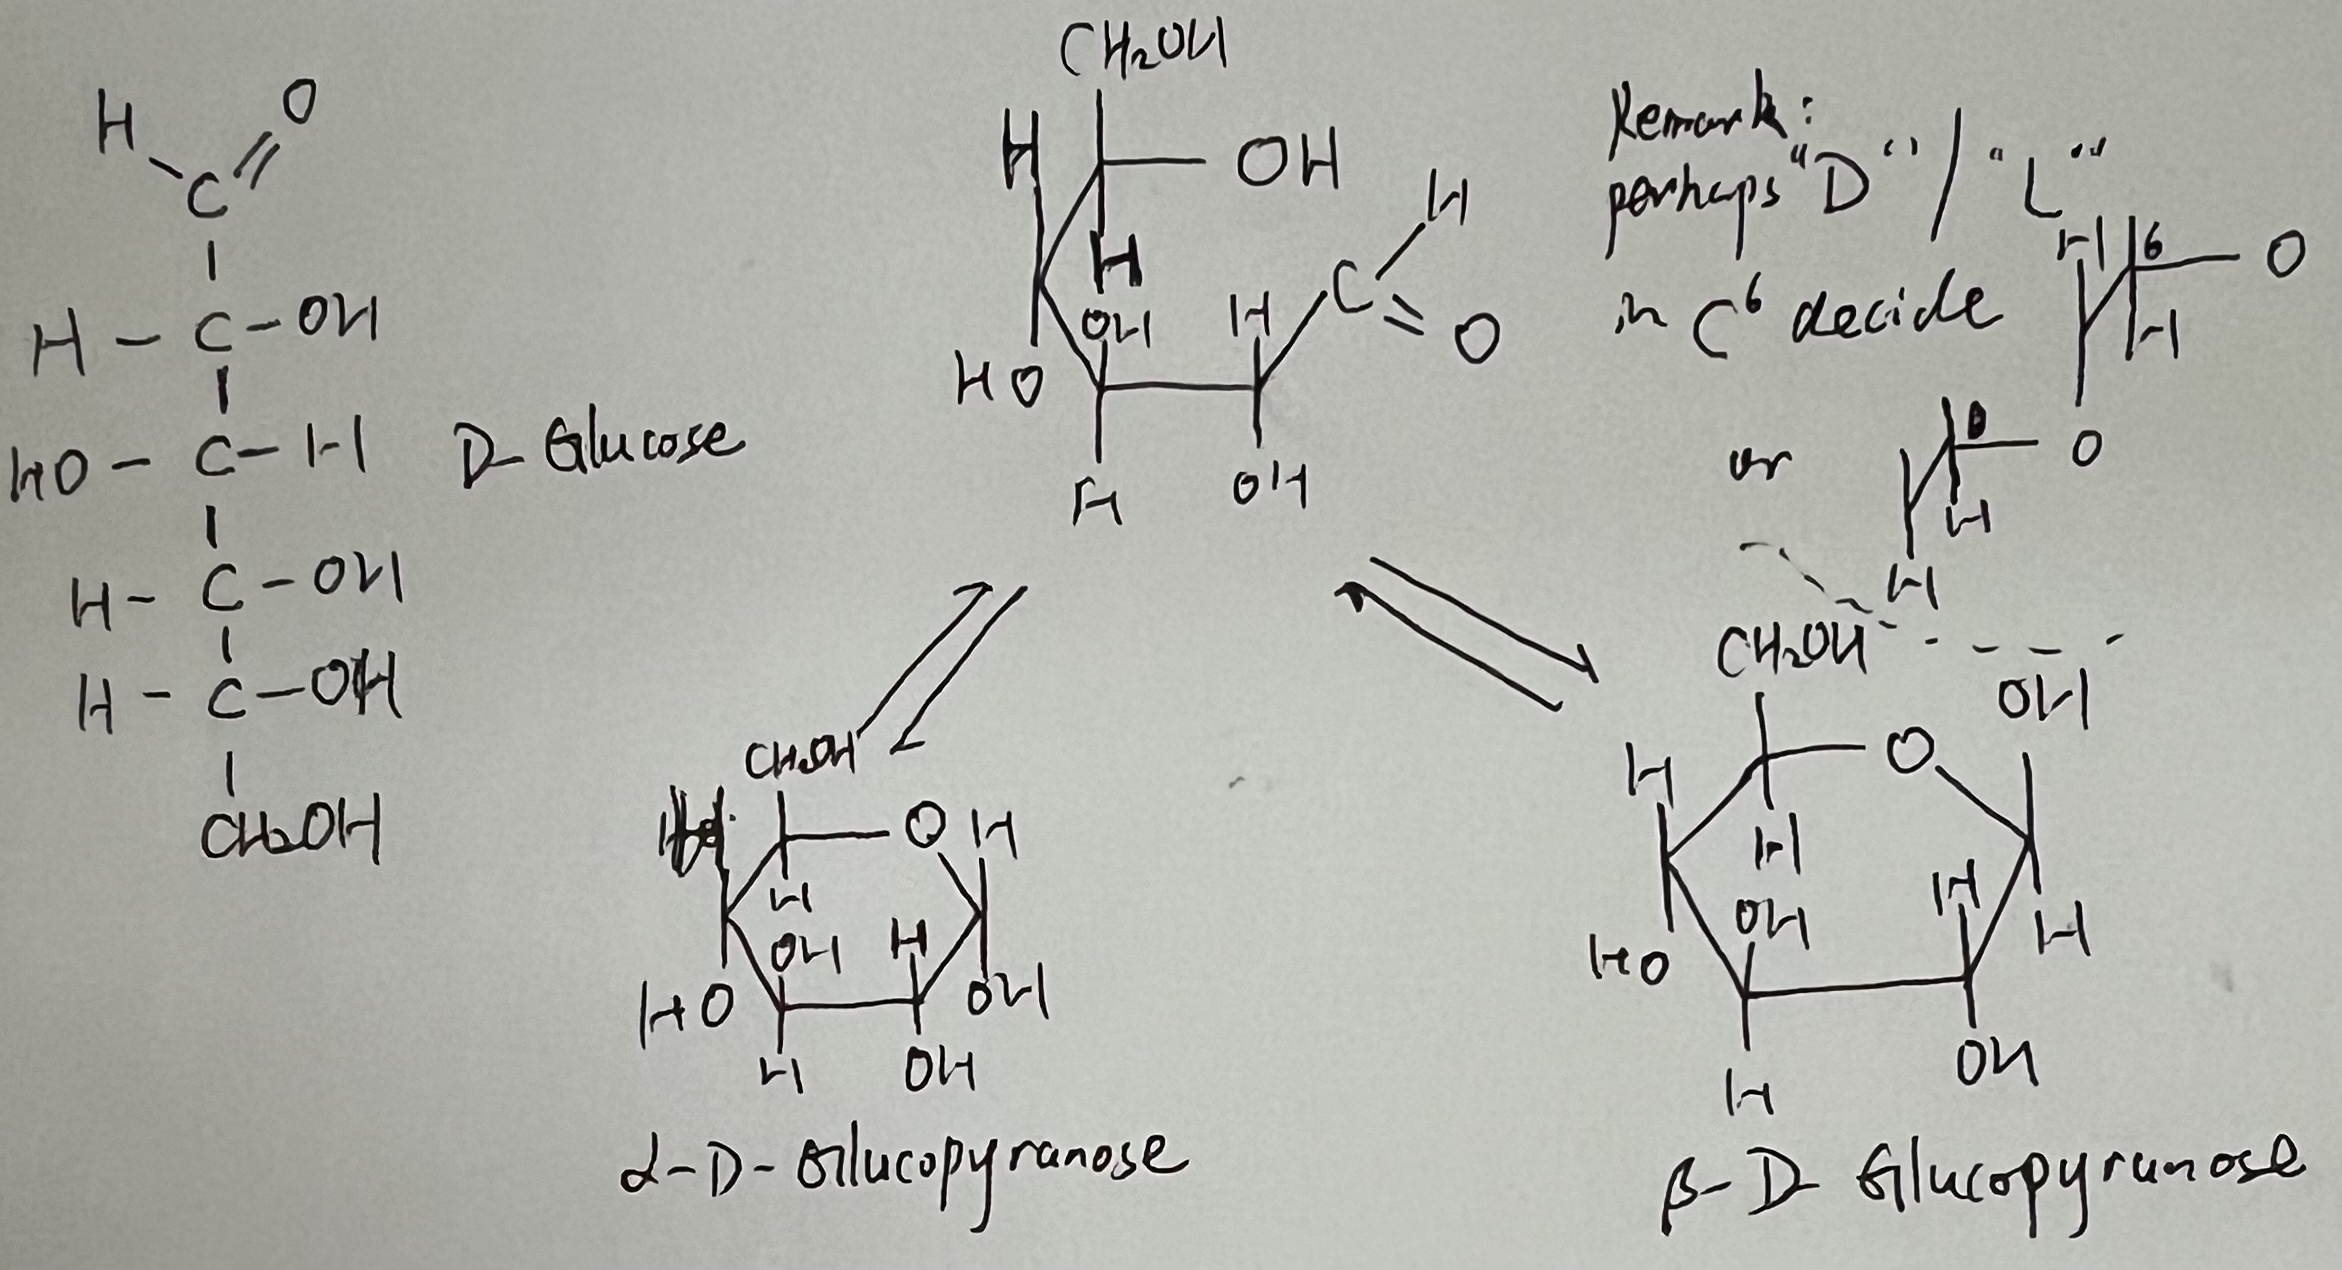 H O
C
H - C - OH
HO - C - H
H - C - OH
H - C - OH
CH₂OH
D-Glucose
CH₂OH
H OH
H
H
OH H C
HO O
H OH
Remark:
perhaps "D" / "L"
in C⁶ decide
H 6 O
H
O
or
H
H
CH₂OH
O H
H
OH H
HO OH
H OH
α-D-Glucopyranose
CH₂OH
OH
H O
H
OH H
HO H
H OH
β-D-Glucopyranose